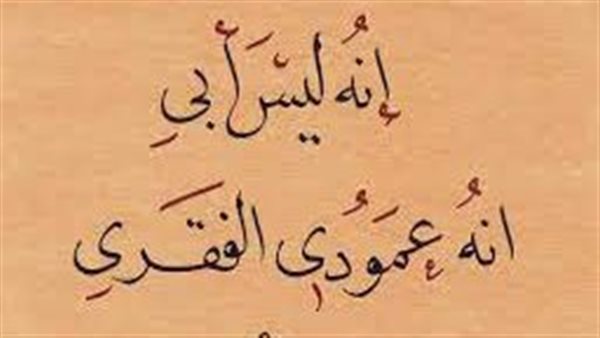 إنهُ ليْسَ أَبيِ
انهُ عِمَوُدِي الفقَريِ